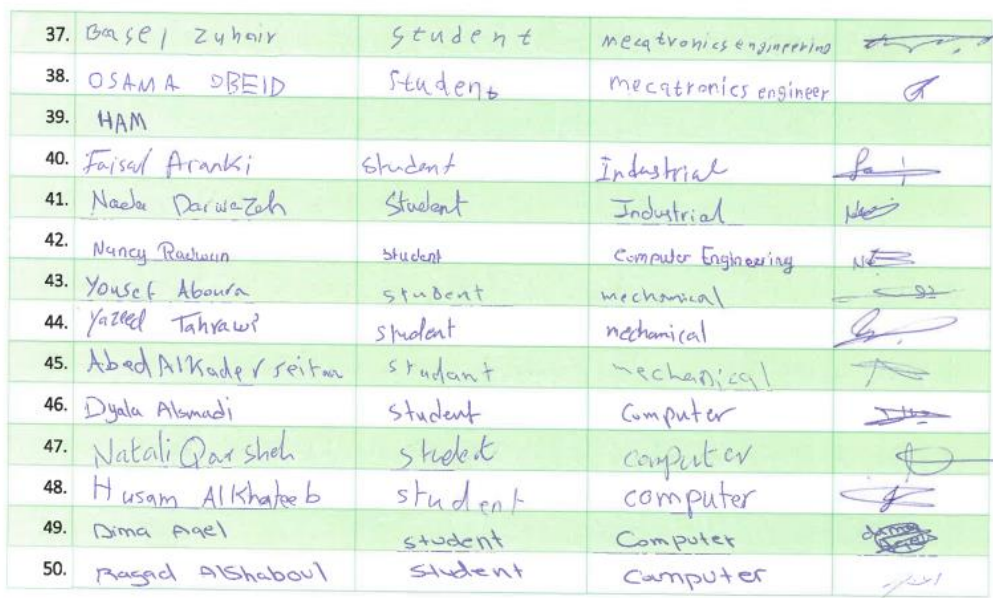 37. Basel Zuhair student mecatronics engineering
38. OSAMA OBEID student mecatronics engineer
39. HAM
40. Faisal Aranki student Industrial
41. Nada Darwazeh Student Industrial
42. Nancy Radwan student Computer Engineering
43. Yousef Aboura student mechanical
44. Yazeed Tahrawi student mechanical
45. Abed AlKader seitan studant mechanical
46. Dyala Alsmadi student Computer
47. Natali Qarsheh student computer
48. Husam AlKhateeb student computer
49. Dima Aqel student Computer
50. Ragad AlShaboul student Computer